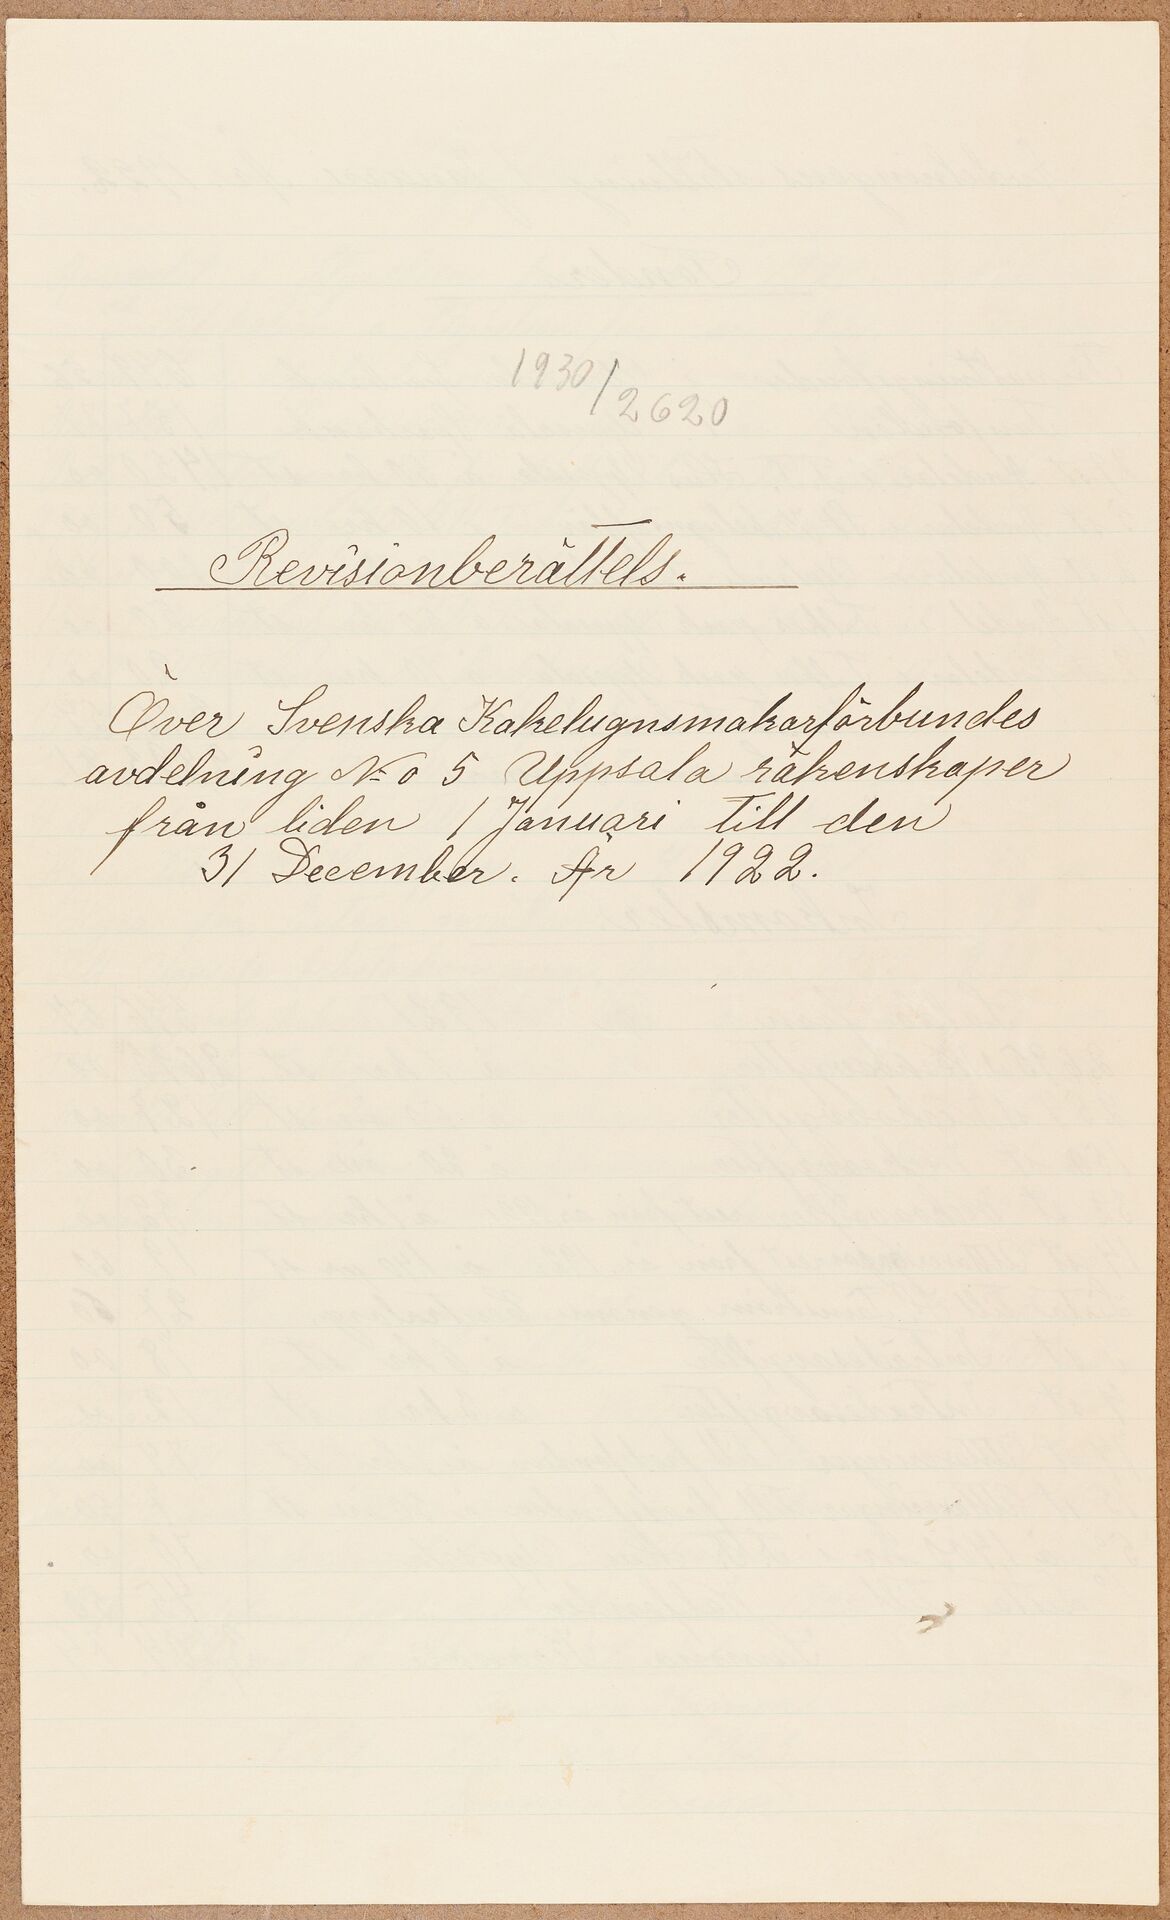 1930/2620
Revisionberättels.
Över Svenska Kakelugnsmakarförbundes
avdelning No 5 Uppsala räkenskaper
från tiden 1 Januari till den
31 December. År 1922.